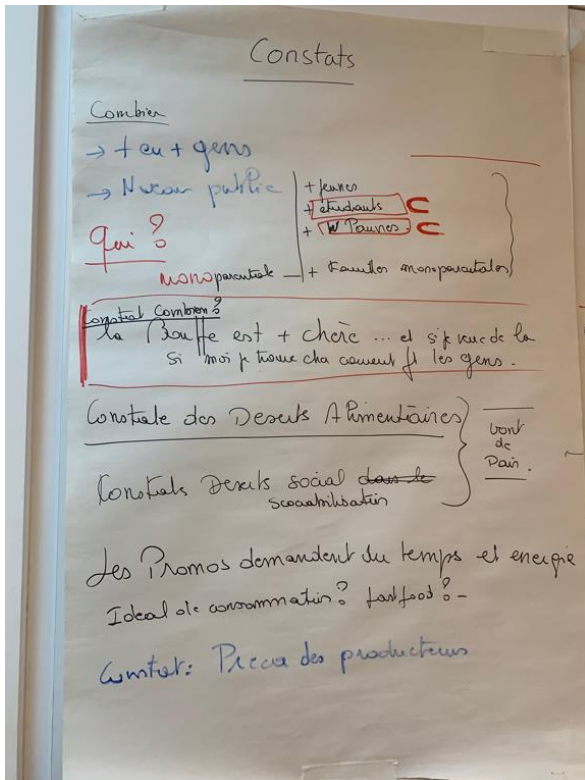 Constats
Combien
→ + en + gens
→ Nveau public
+ jeunes
+ étudiants
+ W Pauvres
Qui ?
monoparentale — + familles monoparentales
Constat Combien ?
la Bouffe est + chère ... et si je
si moi je trouve cha comment ft les gens.
Constate des Deserts Alimentaires
vont
de
Pair.
Constats Deserts social dans le
scociabilisation
Les Promos demandent du temps et energie
Ideal de consommation ? fastfood ? -
Constat : Preca des producteurs